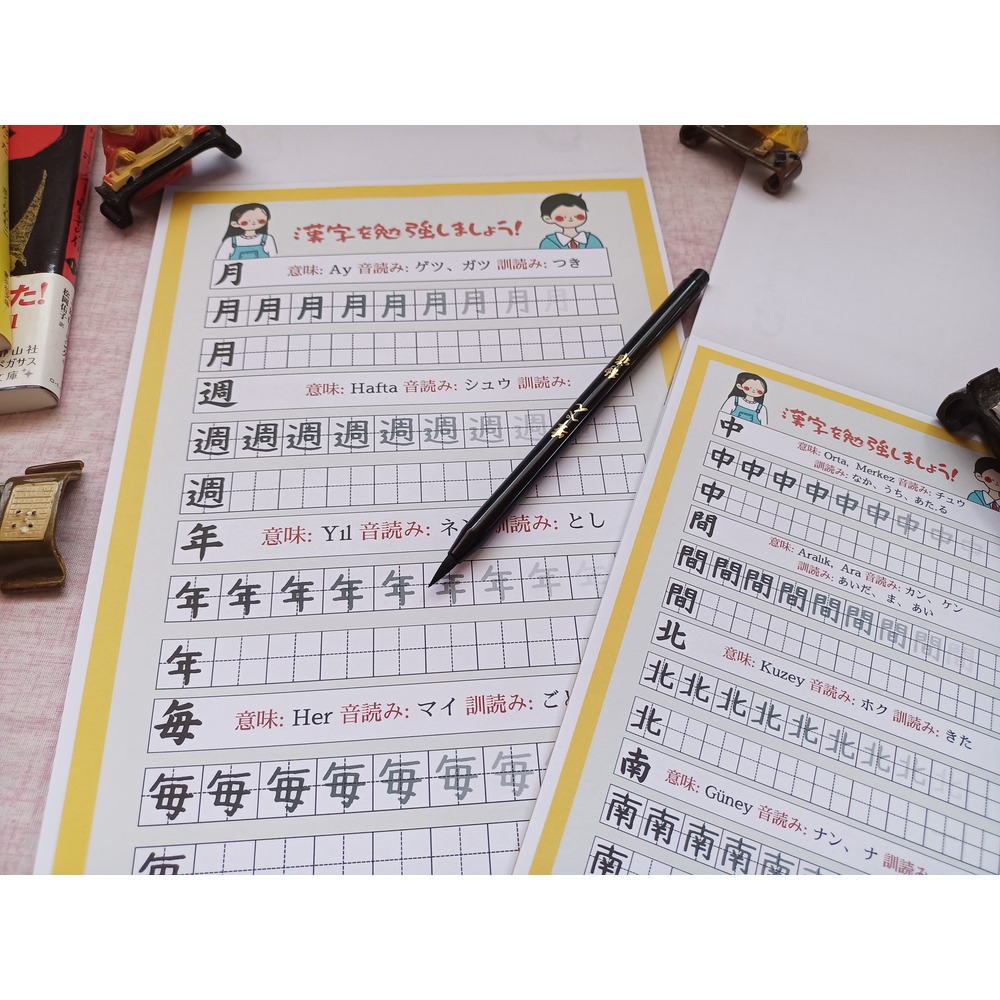 漢字を勉強しましょう!
月 意味: Ay 音読み: ゲツ、ガツ 訓読み: つき
月月月月月月月月
月
週 意味: Hafta 音読み: シュウ 訓読み:
週週週週週週週週
週
年 意味: Yıl 音読み: ネン 訓読み: とし
年年年年年年年年年
年
毎 意味: Her 音読み: マイ 訓読み: ごと
毎毎毎毎毎毎毎
毎
漢字を勉強しましょう!
中 意味: Orta, Merkez 音読み: チュウ
訓読み: なか、うち、あた.る
中中中中中中中中中
中
間 意味: Aralık, Ara 音読み: カン、ケン
訓読み: あいだ、ま、あい
間間間間間間間間間
間
北 意味: Kuzey 音読み: ホク 訓読み: きた
北北北北北北北北北
北
南 意味: Güney 音読み: ナン、ナ 訓読み
南南南南南
南
た!
松岡佑子 訳
山社
ガサス
文庫